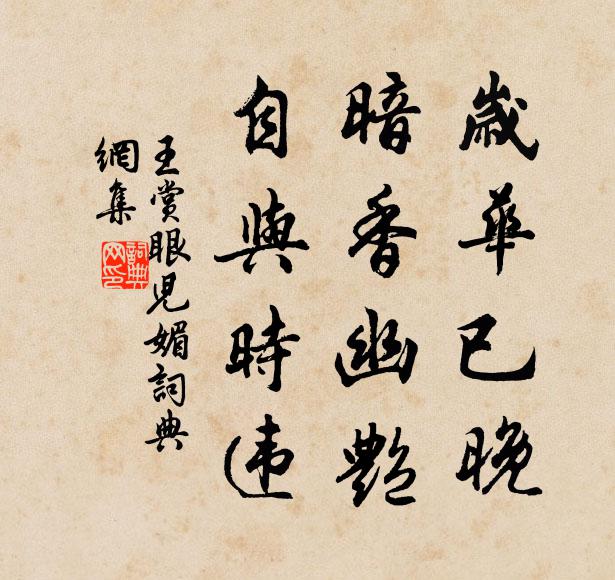 歲華已晚
暗香幽艷
自與時违
王賞眼兒媚詞典
網集
詞典
网印